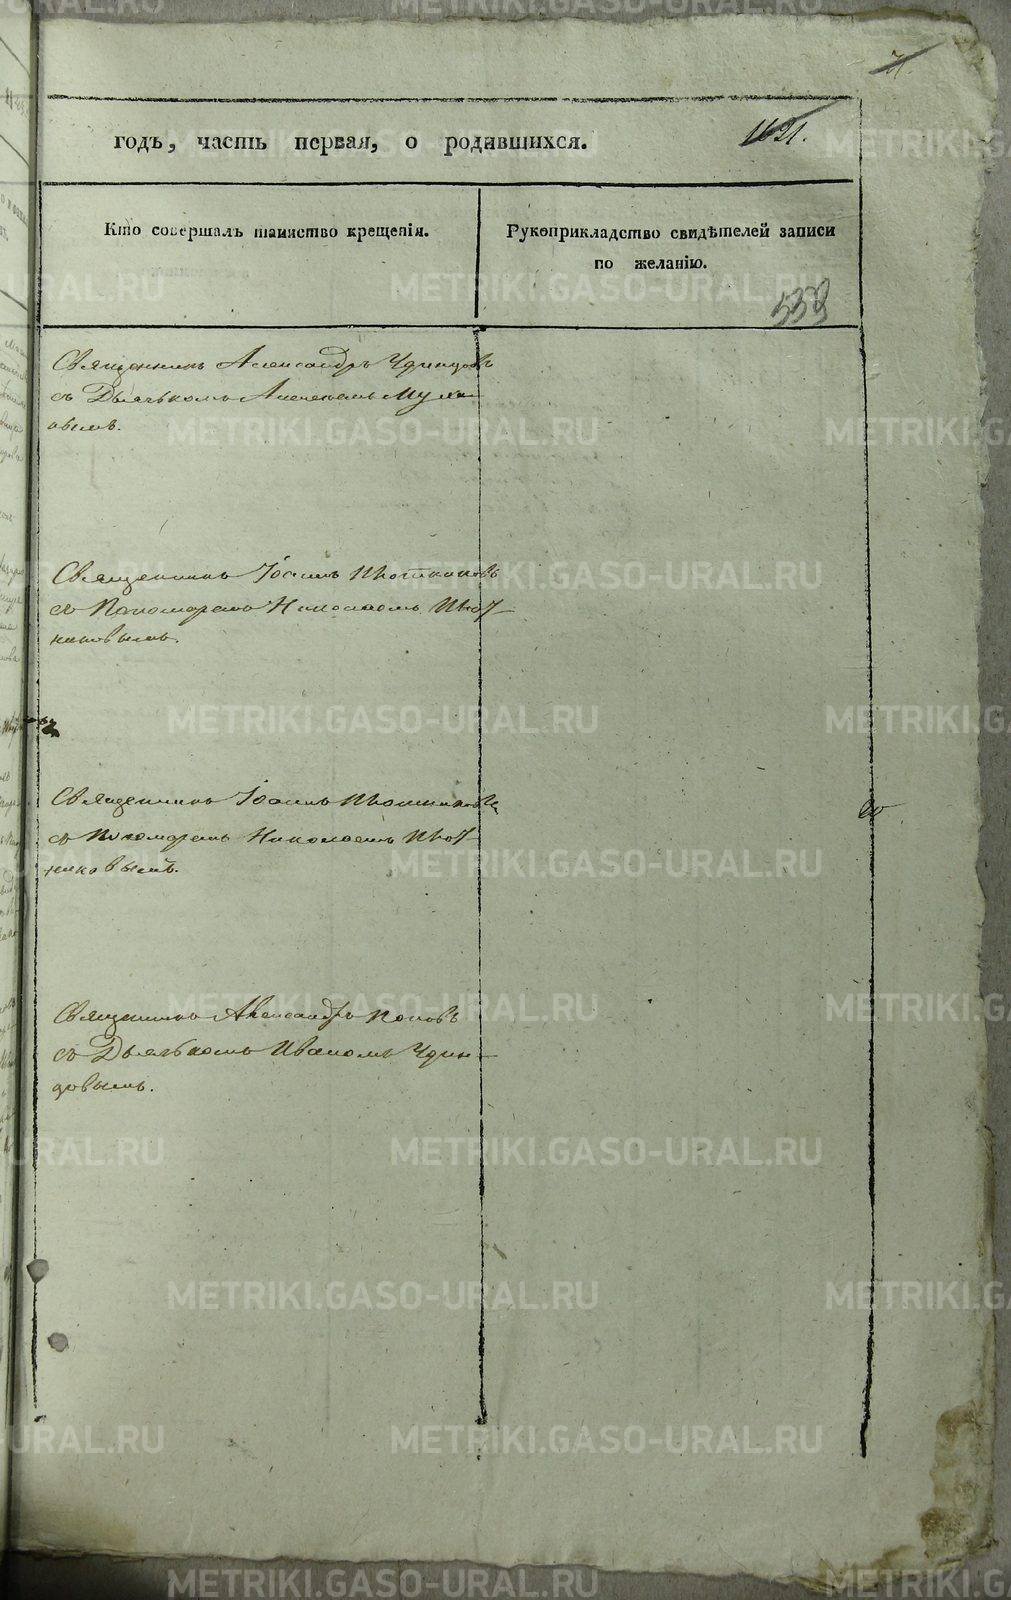 71.
годъ, часть первая, о родившихся.
1121.
Кто совершалъ таинство крещенія.
Рукоприкладство свидѣтелей записи
по желанію.
Священникъ Александръ Удинцовъ
съ Дьячкомъ Алексѣемъ
овымъ.
Священникъ Іоаннъ Плотниковъ
съ Пономаремъ Николаемъ Плот
никовымъ.
Священникъ Іоаннъ Плотниковъ
съ Пономаремъ Николаемъ Плот
никовымъ.
Священникъ Александръ Поповъ
съ Дьячкомъ Иваномъ Удин
цовымъ.
METRIKI.GASO-URAL.RU